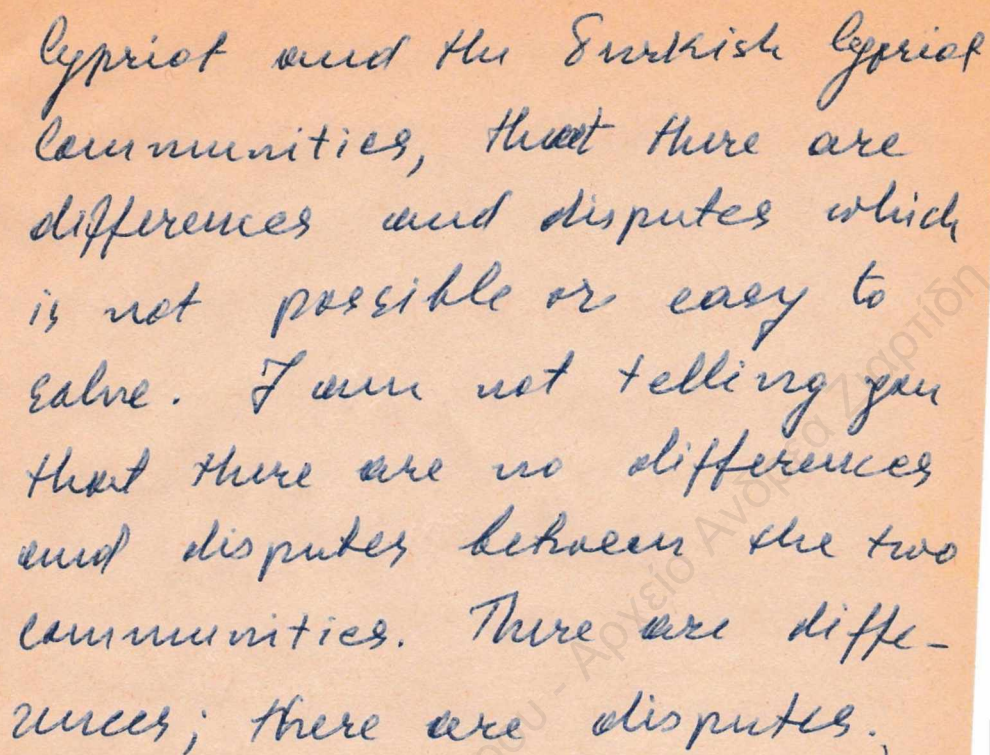 Cypriot and the Turkish Cypriot
Communities, that there are
differences and disputes which
is not possible or easy to
solve. I am not telling you
that there are no differences
and disputes between the two
communities. There are diffe-
rences; there are disputes.
Αρχείο Ανδρέα Ζιαρτίδη